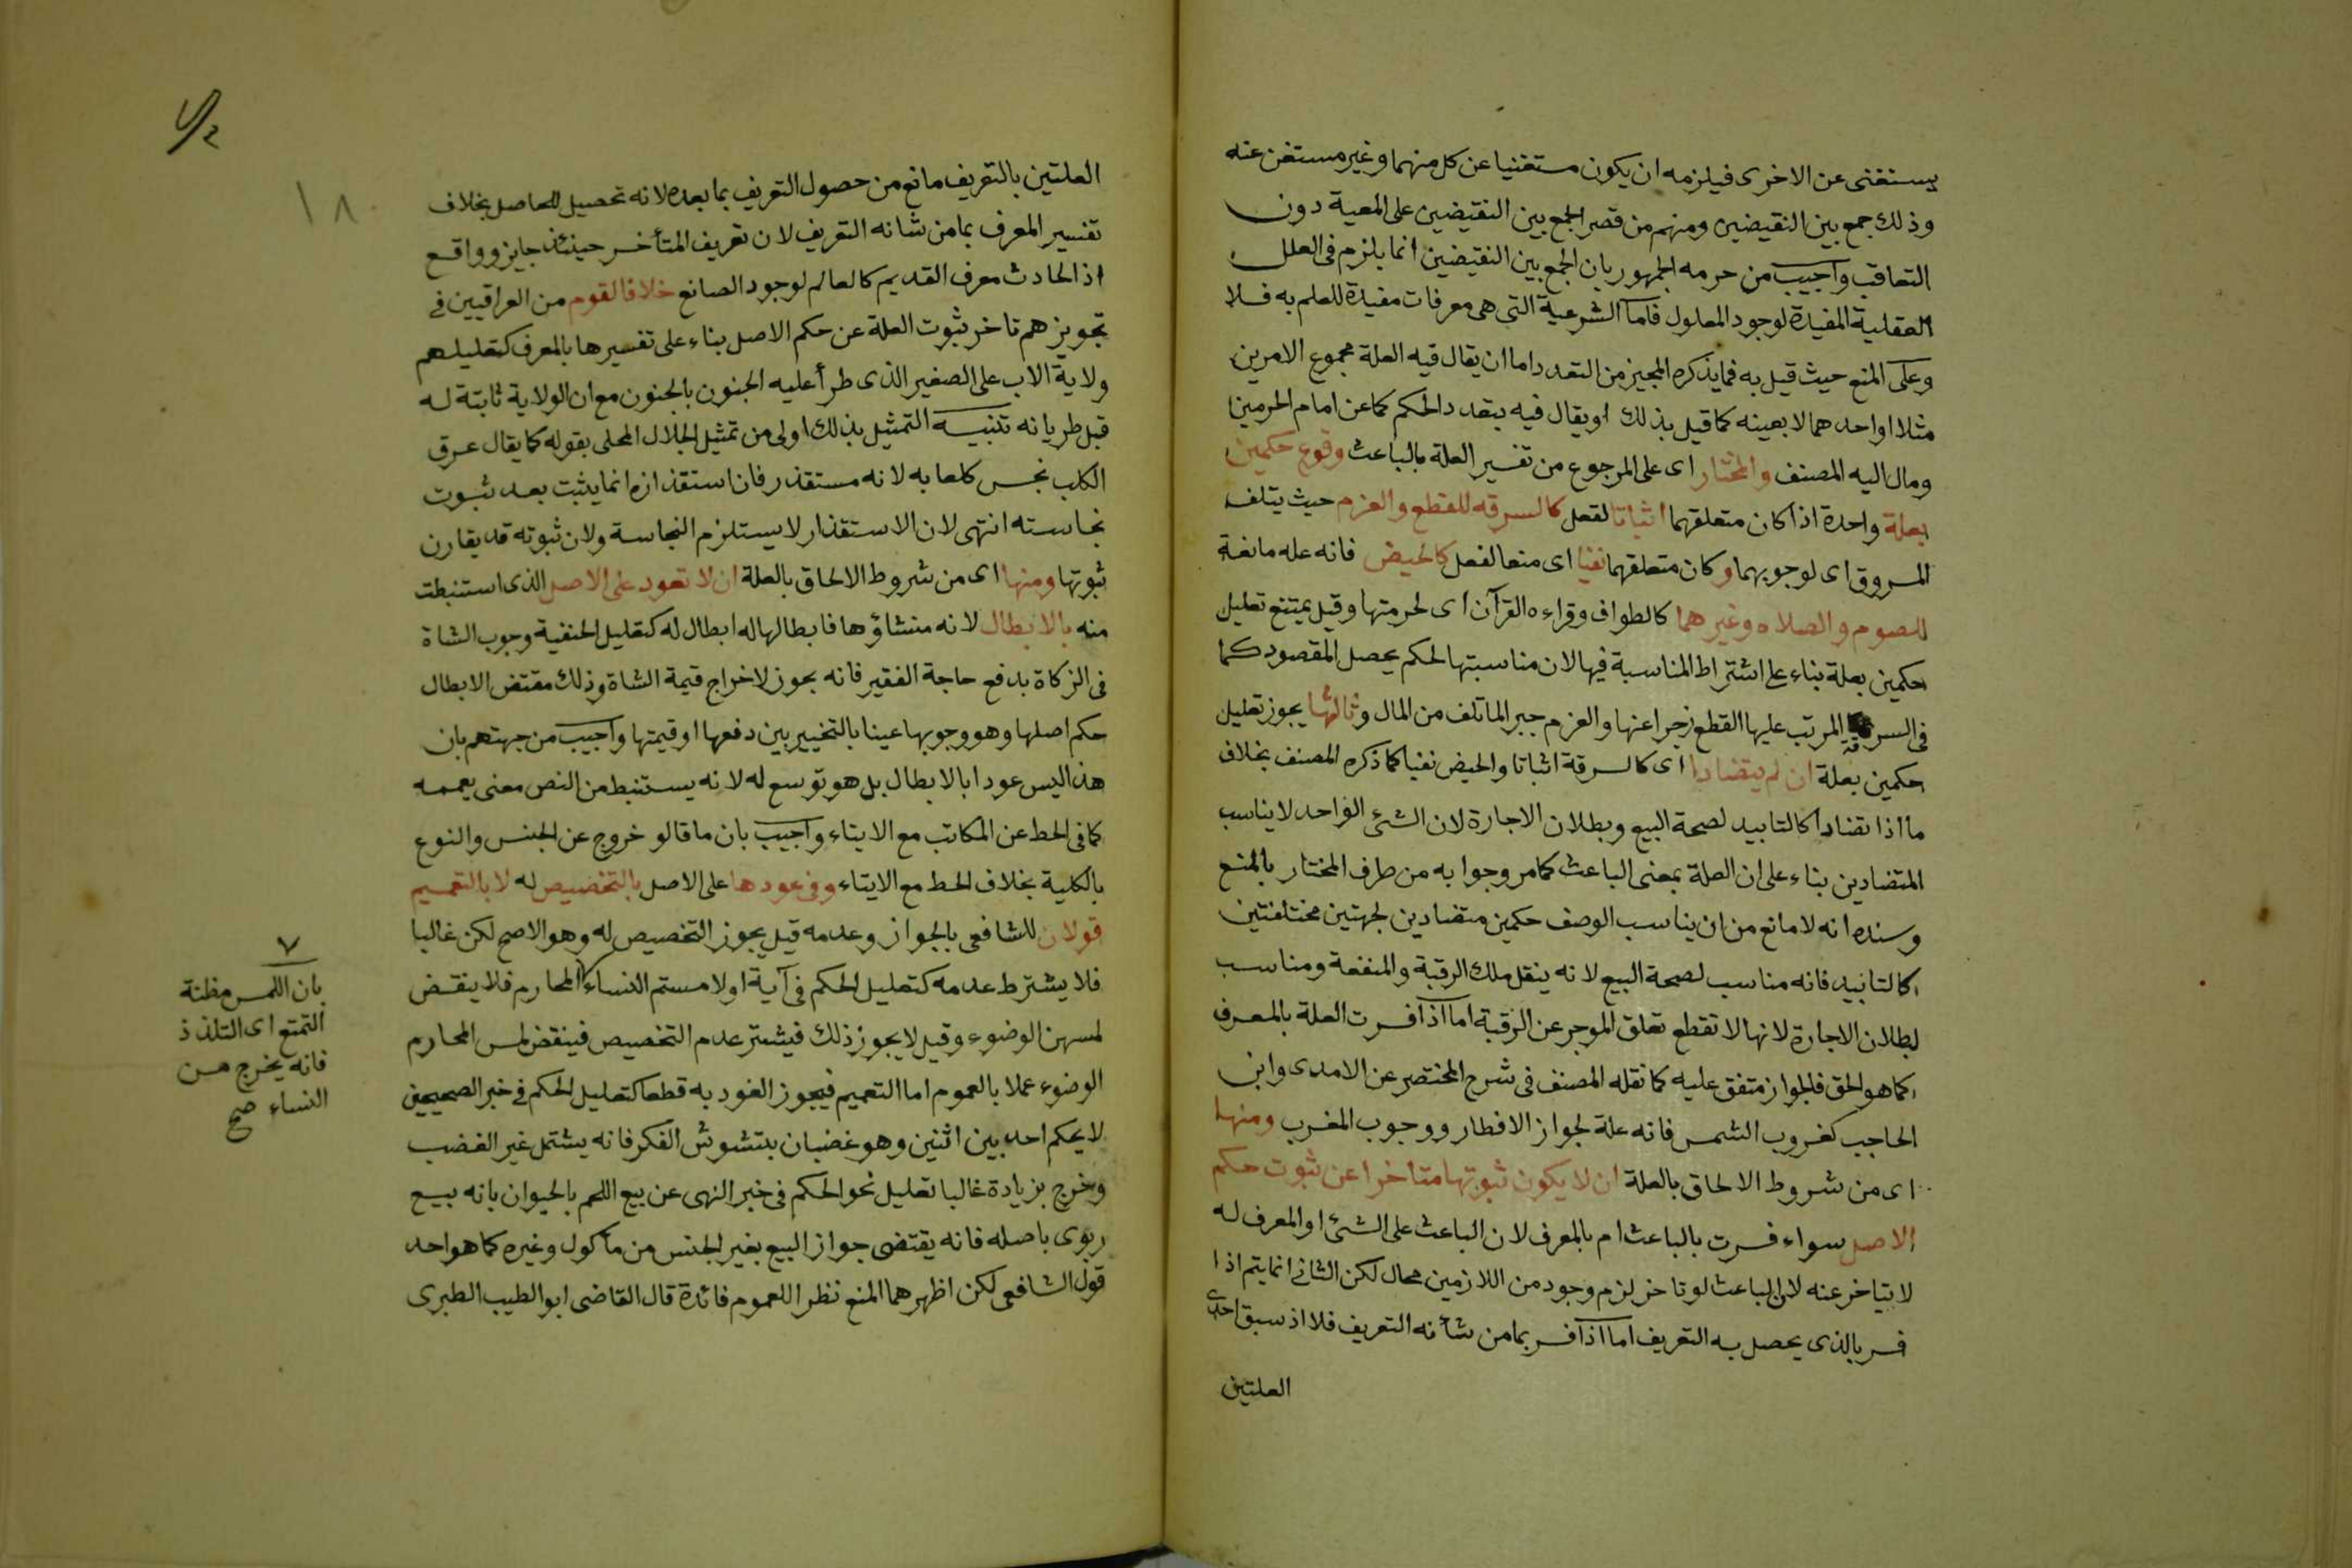 يستغنى عن الاخرى فيلزمه ان يكون مستغنيا عن كل منهما وغير مستغن عنه
وذلك جمع بين النقيضين ومنهم من قصر الجمع بين النقيضين على المعية دون
التعاقب واجيب من حرمه الجمهور بان الجمع بين النقيضين انما يلزم فى العلل
العقلية المفيدة لوجود المعلول فاما الشرعية التى هى معرفات مفيدة للعلم به فلا
وعلى المنع حيث قيل به فما يذكره المجيز من التعدد اما ان يقال فيه العلة مجموع الامرين
مثلا او احدهما لا بعينه كما قيل بذلك او يقال فيه يتعدد الحكم كما عن امام الحرمين
ومال اليه المصنف والمختار اى على المرجوع من تفسير العلة بالباعث وقوع حكمين
بعلة واحدة اذا كان متعلقهما اثباتا لفعل كالسرقه للقطع والغرم حيث يتلف
المسروق اى لوجوبهما وكان متعلقهما نفيا اى منعا لفعل كالحيض فانه عله مانعة
للصوم والصلاه وغيرهما كالطواف وقراءه القرآن اى لحرمتها وقيل يمتنع تعليل
حكمين بعلة بناء على اشتراط المناسبة فيها لان مناسبتها لحكم يحصل المقصود كما
فى السرقة المرتب عليها القطع زجرا عنها والغرم جبرا لما تلف من المال وثالثها يجوز تعليل
حكمين بعلة ان لم يتضادا اى كالسرقة اثباتا والحيض نفيا كما ذكره المصنف بخلاف
ما اذا تضادا كالتابيد لصحة البيع وبطلان الاجارة لان الشئ الواحد لا يناسب
المتضادين بناء على ان العلة بمعنى الباعث كما مر وجوابه من طرف المختار بالمنع
وسنده انه لا مانع من ان يناسب الوصف حكمين متضادين لجهتين مختلفتين
كالتابيد فانه مناسب لصحة البيع لانه ينقل ملك الرقبة والمنفعة ومناسب
لبطلان الاجارة لانها لا تقطع تعلق الموجر عن الرقبة اما اذا فسرت العلة بالمعرف
كما هو الحق فالجواز متفق عليه كما نقله المصنف فى شرح المختصر عن الامدى وابن
الحاجب كغروب الشمس فانه علة لجواز الافطار ووجوب المغرب ومنها
اى من شروط الالحاق بالعلة ان لا يكون ثبوتها متاخرا عن ثبوت حكم
الاصل سواء فسرت بالباعث ام بالمعرف لان الباعث على الشئ او المعرف له
لا يتاخر عنه لان الباعث لو تاخر لزم وجود من اللازمين محال لكن الثانى انما يتم اذا
فسر بالذى يحصل به التعريف اما اذا فسر بما من شأنه التعريف فلا اذ سبق احدى
العلتين
العلتين بالتعريف مانع من حصول التعريف بما بعده لانه تحصيل للحاصل بخلاف
تفسير المعرف بما من شانه التعريف لان تعريف المتأخر حينئذ جايز وواقع
اذ الحادث معرف القديم كالعالم لوجود الصانع خلافا لقوم من العراقيين فى
تجويزهم تاخر ثبوت العلة عن حكم الاصل بناء على تفسيرها بالمعرف كتعليلهم
ولاية الاب على الصغير الذى طرأ عليه الجنون بالجنون مع ان الولاية ثابتة له
قبل طريانه تنبيه التمثيل بذلك اولى من تمثيل الجلال المحلى بقوله كما يقال عرق
الكلب نجس كلعابه لانه مستقذر فان استقذاره انما يثبت بعد ثبوت
نجاسته انتهى لان الاستقذار لا يستلزم النجاسة ولان ثبوته قد يقارن
ثبوتها ومنها اى من شروط الالحاق بالعلة ان لا تعود على الاصل الذى استنبطت
منه بالابطال لانه منشاؤها فابطالها له ابطال له كتعليل الحنفية وجوب الشاة
فى الزكاة بدفع حاجة الفقير فانه يجوز لاخراج قيمة الشاة وذلك مقتض الابطال
حكم اصلها وهو وجوبها عينا بالتخيير بين دفعها او قيمتها واجيب من جهتهم بان
هذا ليس عودا بالابطال بل هو توسع له لانه يستنبط من النص معنى يعممه
كما فى الحط عن المكاتب مع الايتاء واجيب بان ما قالو خروج عن الجنس والنوع
بالكلية بخلاف الحط مع الايتاء وفى عودها على الاصل بالتخصيص له لا بالتعميم
قولان للشافعى بالجواز وعدمه قيل يجوز التخصيص له وهو الاصح لكن غالبا
فلا يشترط عدمه كتعليل الحكم فى آية او لامستم النساء المحارم فلا ينقض
لمسهن الوضوء وقيل لا يجوز ذلك فيشتر عدم التخصيص فينقض لمس المحارم
الوضوء عملا بالعموم اما التعميم فيجوز العود به قطعا كتعليل الحكم فى خبر الصحيحين
لا يحكم احد بين اثنين وهو غضبان بتشوش الفكر فانه يشتمل غير الغضب
وخرج بزيادة غالبا تعليل نحو الحكم فى خبر النهى عن بيع اللحم بالحيوان بانه بيع
ربوى باصله فانه يقتضى جواز البيع بغير الجنس من مأكول وغيره كما هو احد
قول الشافعى لكن اظهرهما المنع نظرا للعموم فائدة قال القاضى ابو الطيب الطبرى
٧
بان اللمس مظنة
التمتع اى التلذذ
فانه يخرج من
النساء صح
١٨٠